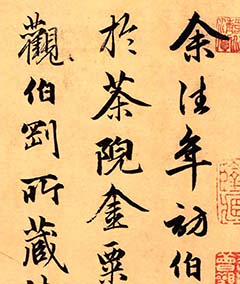 余往年訪伯
於茶院金粟
觀伯劉所藏